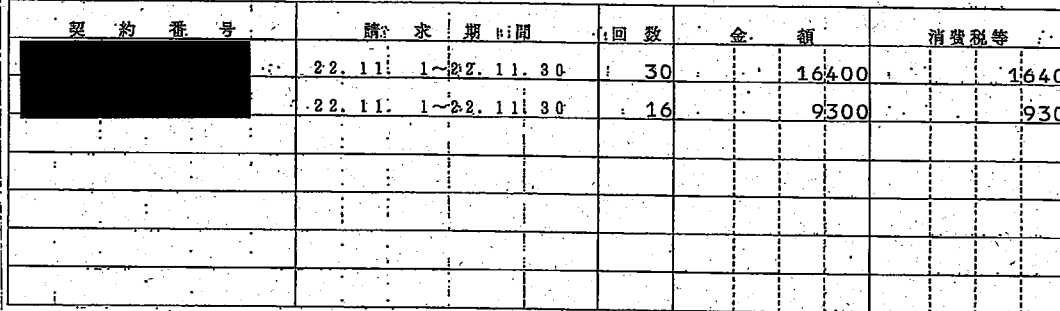 契約番号 請求期間 回数 金額 消費税等
22.11. 1~22.11.30 30 16400 1640
22.11. 1~22.11.30 16 9300 930